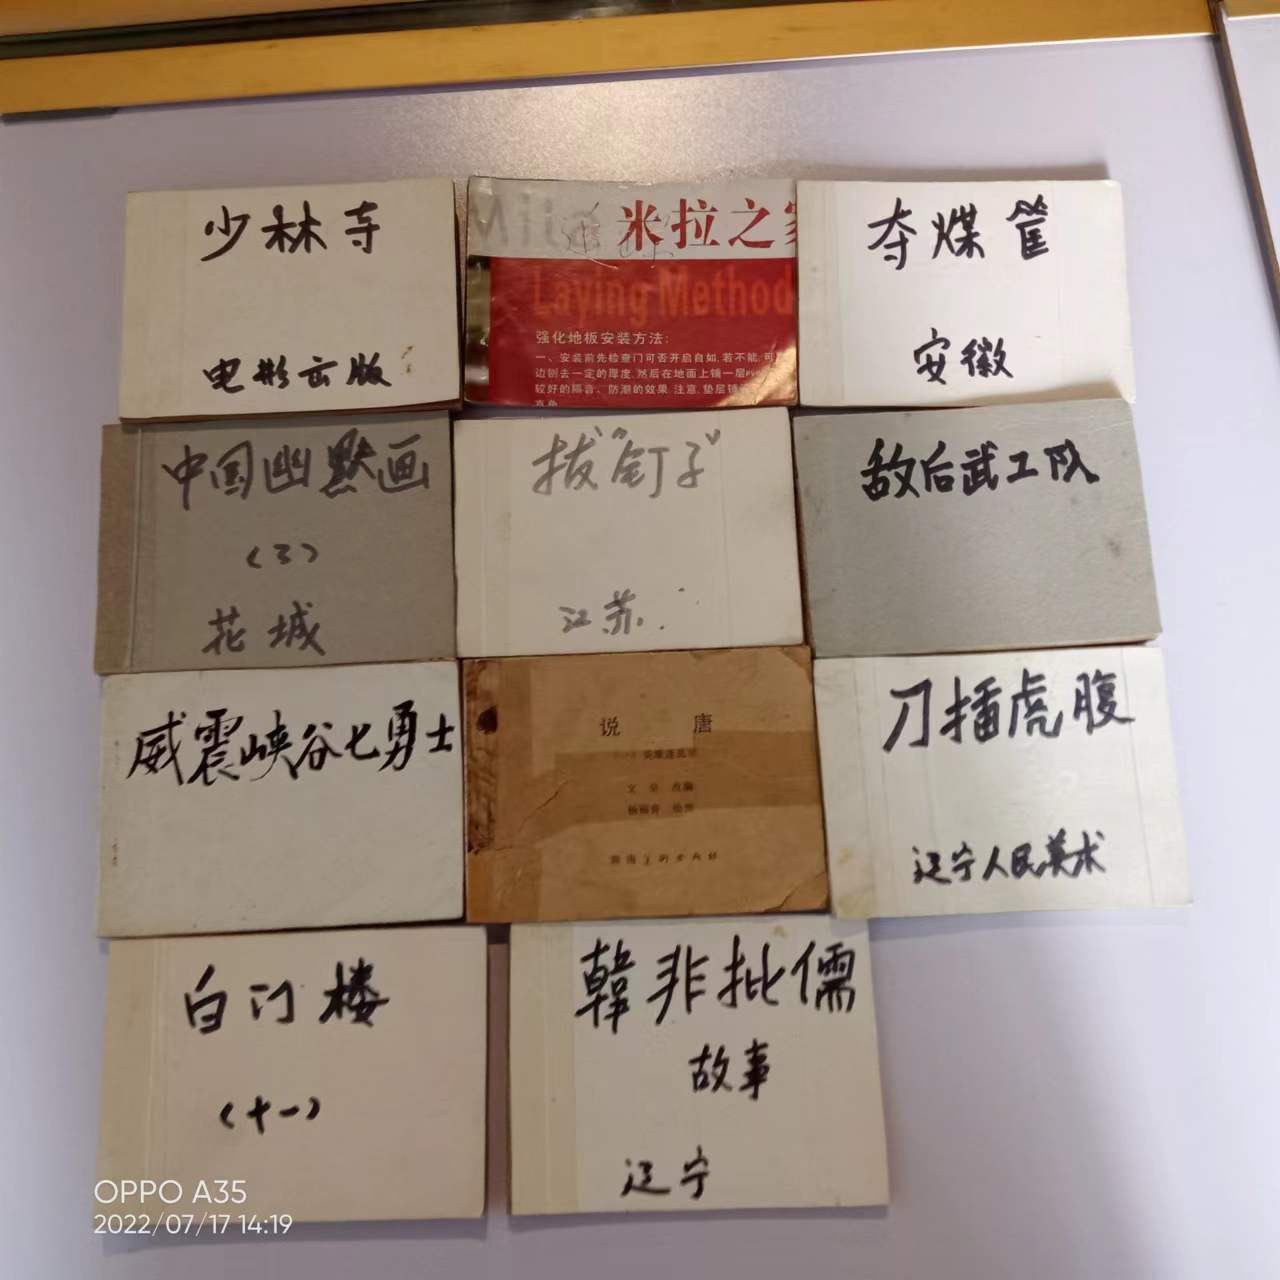 少林寺
电影出版
米拉之家
Laying Method
强化地板安装方法:
一、安装前先检查门可否开启自如,若不能,可
边刨去一定的厚度,然后在地面上铺一层
较好的隔音、防潮的效果,注意,垫层铺
直角
夺煤筐
安徽
中国幽默画
(三)
花城
拔“钉子”
江苏.
敌后武工队
威震峡谷七勇士
说 唐
改编
湖南美术出版社
刀插虎腹
辽宁人民美术
白门楼
(十一)
韓非批儒
故事
辽宁
OPPO A35
2022/07/17 14:19